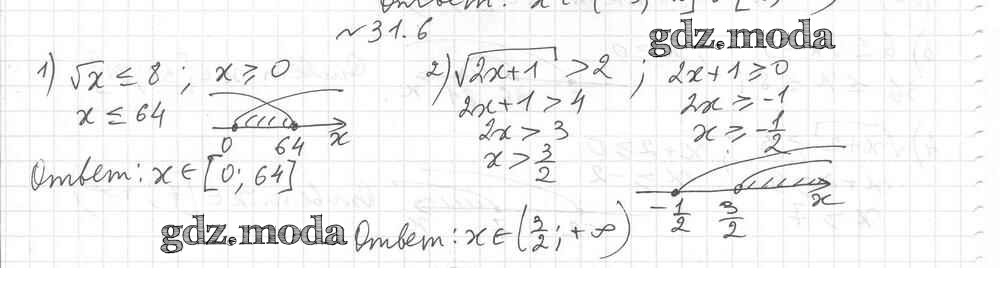 №31.6
gdz.moda
1) √x ≤ 8 ; x ≥ 0
x ≤ 64
0 64 x
Ответ: x ∈ [0; 64]
2) √2x+1 > 2 ; 2x+1 ≥ 0
2x+1 > 4 2x ≥ -1
2x > 3 x ≥ -1/2
x > 3/2
-1/2 3/2 x
gdz.moda
Ответ: x ∈ (3/2; +∞)